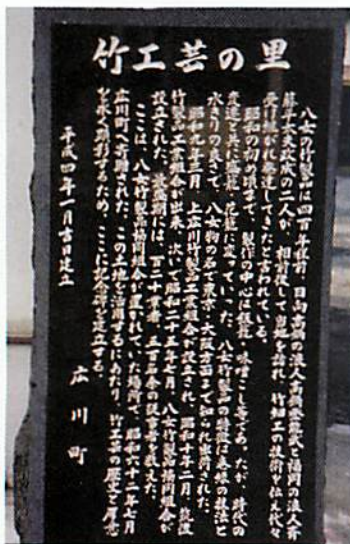 竹工芸の里
八女の竹製品は四百年程前、日向高岡の浪人吉岡武と福岡の浪人斉
藤大夫政成の二人が、相前後してを訪れ、竹細工の技術を伝え代々
受け継がれ発達してきたと言われている。
昭和の初め頃まで、製作の中心は飯籠、味噌こし等であったが、時代の
変遷と共に盛籠、花籠に変っていった。八女竹製品の特徴は巻縁の技法と
水きりの良さで、八女物の名で東京、大阪方面まで知られ出荷された。
昭和九年三月、上広川竹製品工業組合が設立され、昭和十年二月、筑後
竹製品工業組合が出来、次いで昭和二十五年七月、八女竹製品協同組合が
設立された。最盛期には、百二十業者、三百名余の従事者を数えた。
ここは、八女竹製品協同組合が置かれていた場所で、昭和六十二年七月
広川町へ寄贈された。この土地を活用するにあたり、竹工芸の歴史と厚意
を永く顕彰するため、ここに記念碑を建立する。
平成四年一月吉日建立
広川町